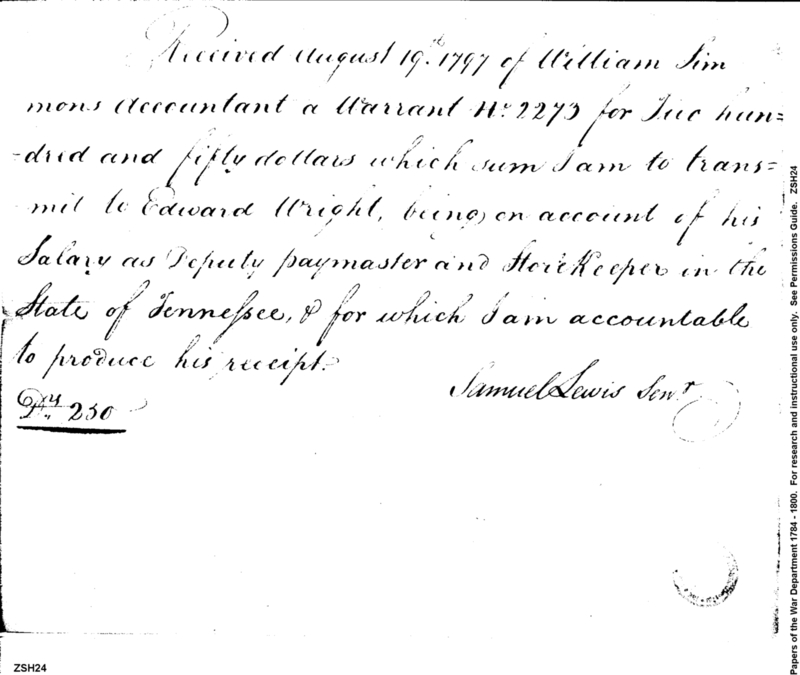 Received August 19th. 1797 of William Sim
mons Accountant a Warrant No. 2273 for Two hun=
=dred and fifty dollars which sum I am to trans=
mit to Edward Wright, being on account of his
Salary as Deputy paymaster and Storekeeper in the
State of Tennessee, & for which I am accountable
to produce his receipt.
Samuel Lewis Senr.
Drs. 250
Papers of the War Department 1784 - 1800. For research and instructional use only. See Permissions Guide. ZSH24
ZSH24